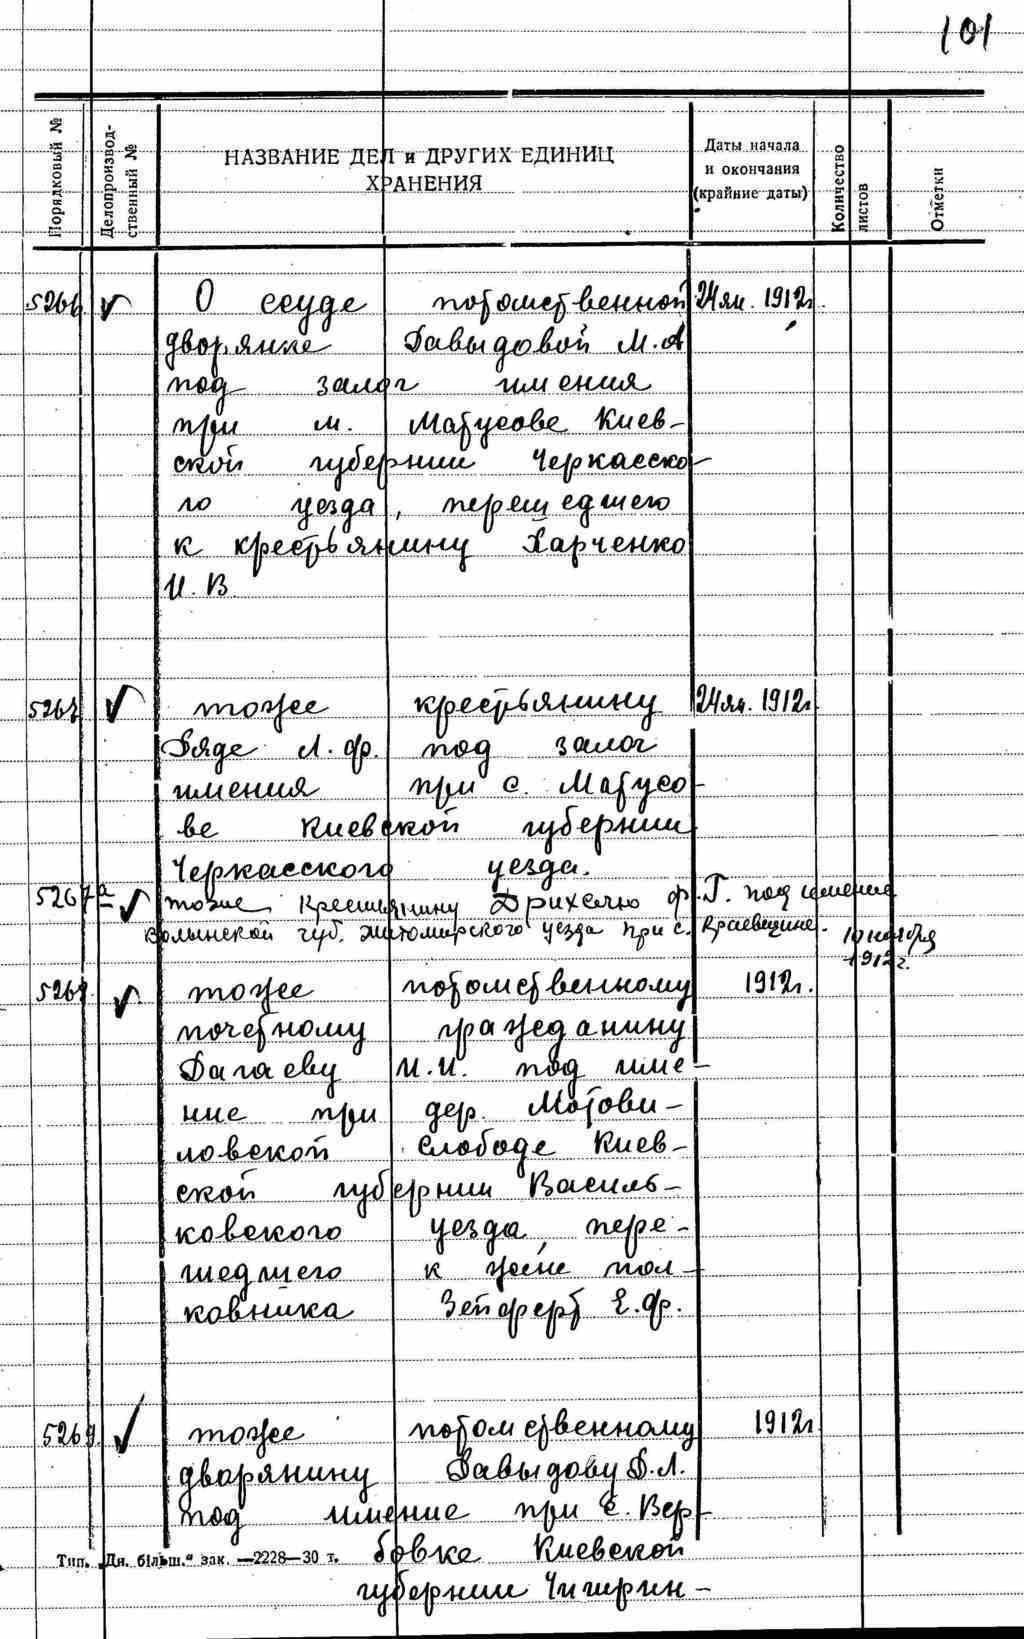 101
Порядковый №
Делопроизвод-
ственный №
НАЗВАНИЕ ДЕЛ и ДРУГИХ ЕДИНИЦ
ХРАНЕНИЯ
Даты начала
и окончания
(крайние даты)
Количество
листов
Отметки
5266 ✓ О ссуде потомственной 24 ян. 1912г.
дворянке Давыдовой М.А
под залог имения
при м. Матусове Киев-
ской губернии Черкасско-
го уезда, перешедшего
к крестьянину Харченко
И.В.
5267 ✓ тоже крестьянину 24 ян. 1912г
Бяде Л.Ф. под залог
имения при с. Матусо-
ве Киевской губернии
Черкасского уезда.
5267а ✓ тоже крестьянину Дрихелю Ф.Г. под имение
Волынской губ. Житомирского уезда при с. Краевщине. 10 ноября
1912г.
5268. ✓ тоже потомственному 1912г.
почетному гражданину
Дагаеву И.И. под име-
ние при дер. Мотови-
ловской Слободе Киев-
ской губернии Василь-
ковского уезда, пере-
шедшего к жене пол-
ковника Зейферт Е.Ф.
5269. ✓ тоже потомственному 1912г
дворянину Давыдову Д.Л.
под имение при с. Вер-
бовке Киевской
губернии Чигирин-
Тип. „Дн. більш.“ зак. —2228—30 т.